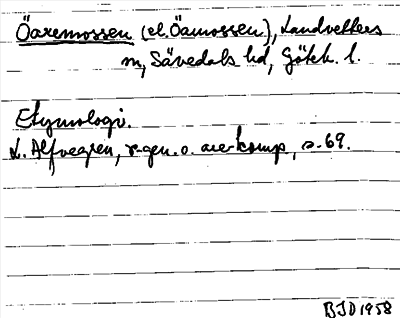 Öaremossen (el. Öamossen), Landvetters
m, Sävedals hd, Göteb. l.
Etymologi.
L. Alfvegren, r-gen. o. are-komp, s. 69.
BJD 1958